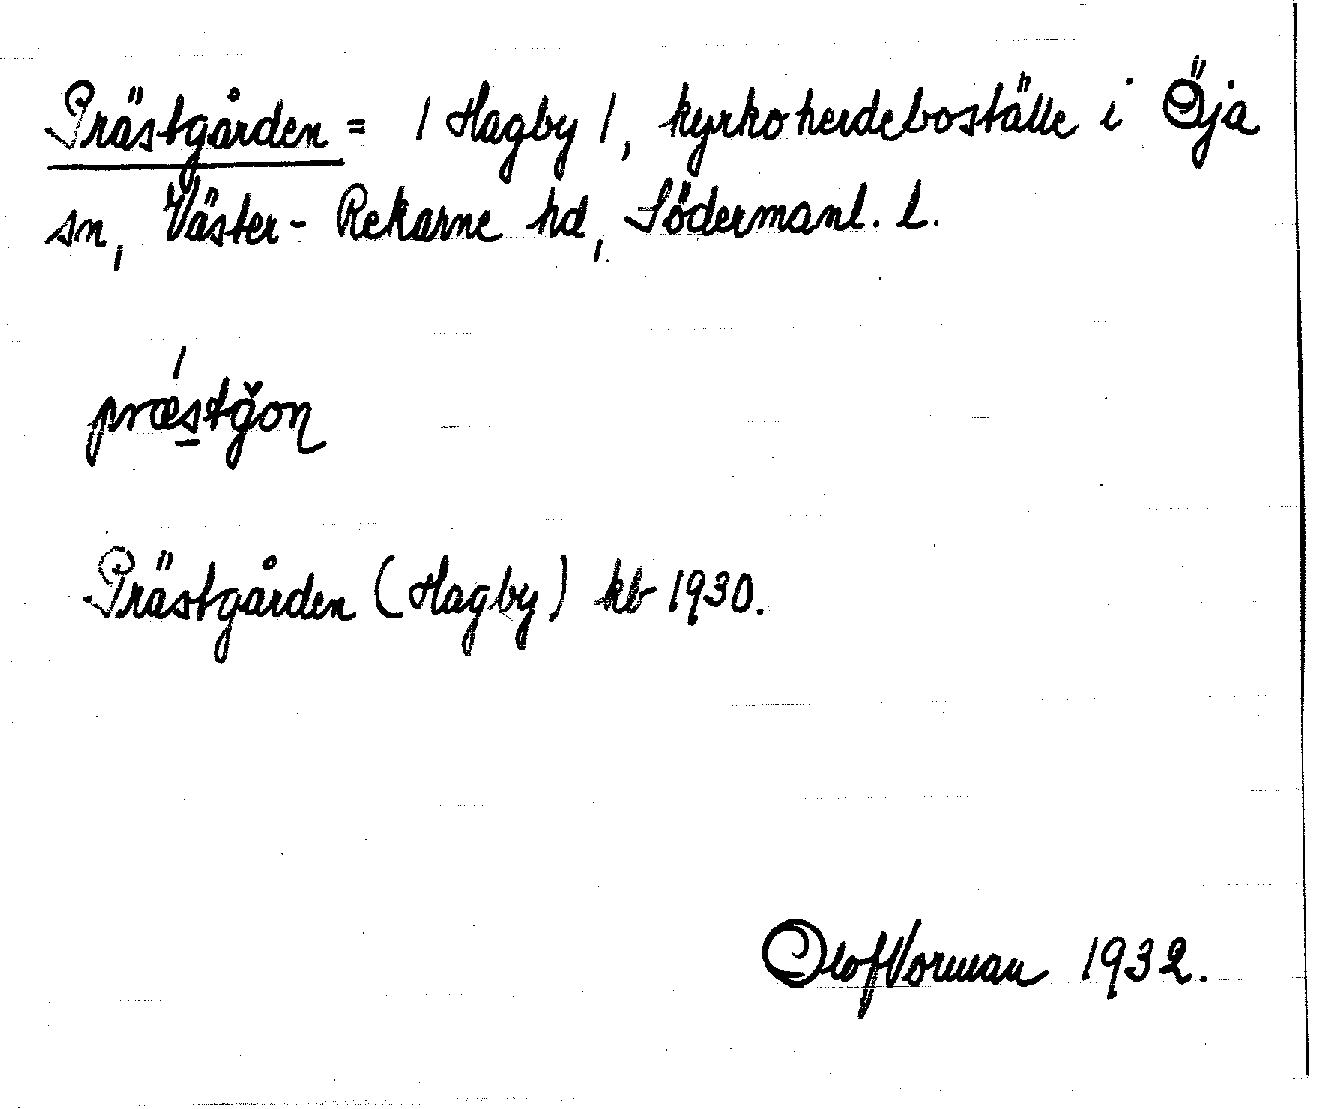 Prästgården = / Hagby /, kyrkoherdeboställe i Öja
sn, Väster-Rekarne hd, Södermanl. l.
præstgon
Prästgården (Hagby) kb 1930.
Olof Vorman 1932.